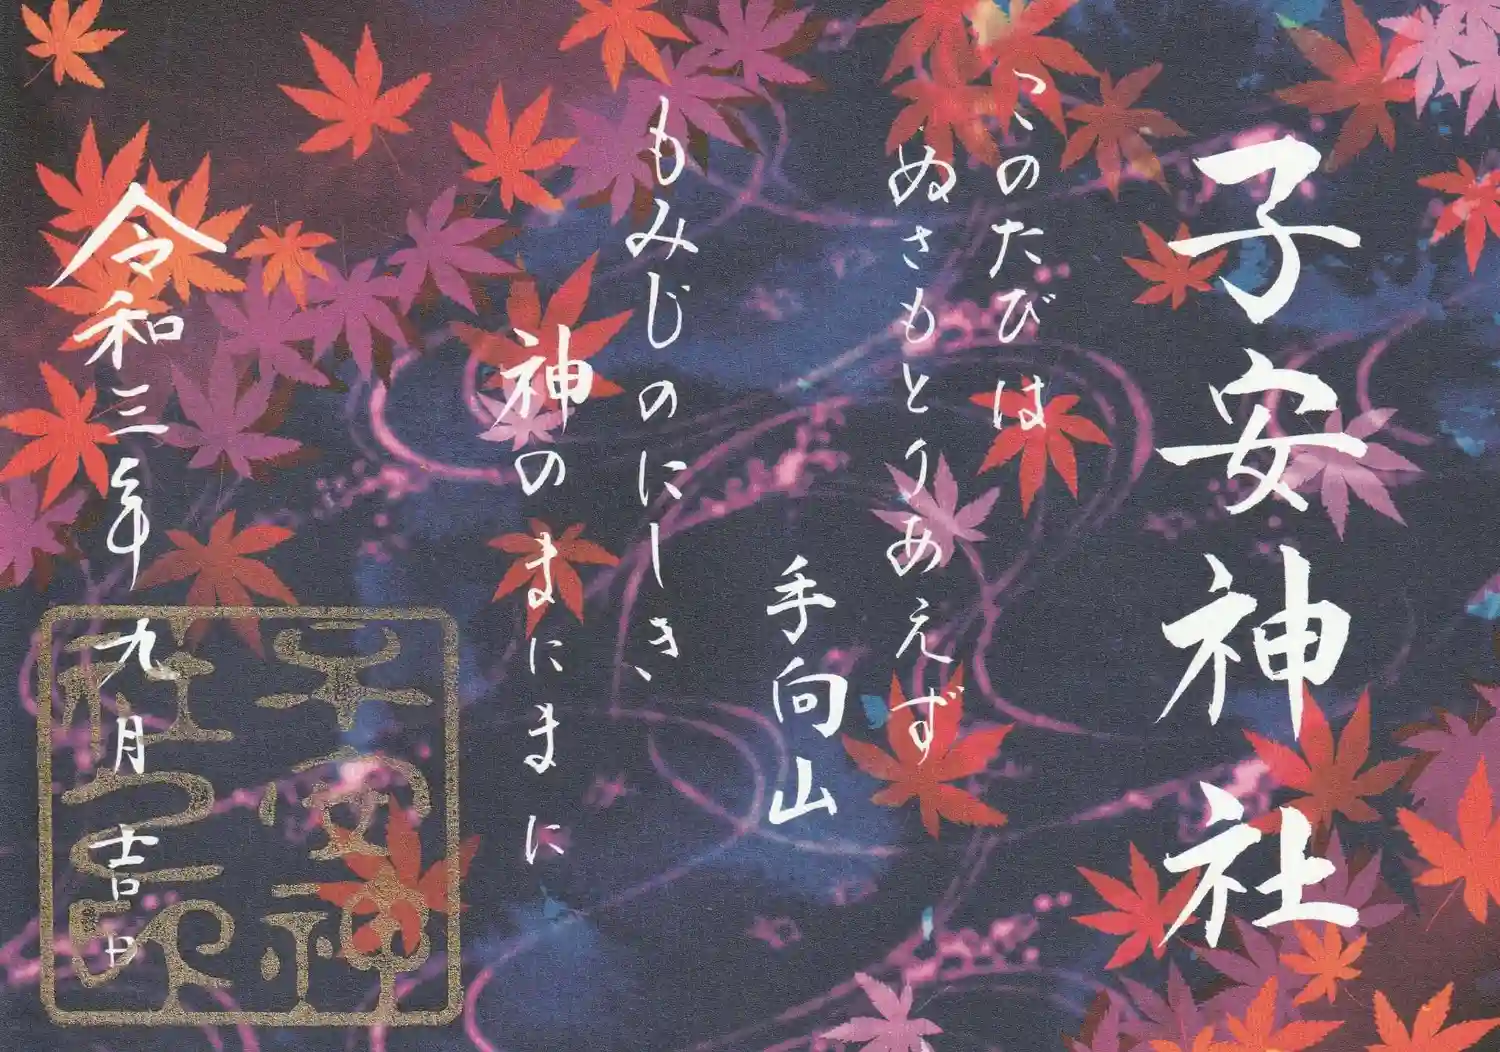 子安神社
このたびは
ぬさもとりあえず
手向山
もみじのにしき
神のまにまに
令和三年九月吉日
子安神
社之印